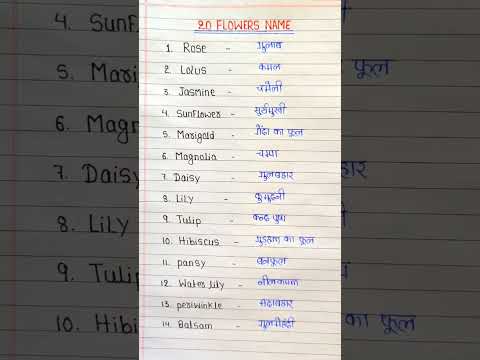 20 FLOWERS NAME
1. Rose - गुलाब
2. Lotus - कमल
3. Jasmine - चमेली
4. SunFlower - सूर्यमुखी
5. Marigold - गेंदा का फूल
6. Magnolia - चम्पा
7. Daisy - गुलबहार
8. Lily - कुमुदनी
9. Tulip - कन्द पुष्प
10. Hibiscus - गुड़हल का फूल
11. pansy - बनफूल
12. Water lily - नीलकमल
13. periwinkle - सदाबहार
14. Balsam - गुलमेंहदी
4. SunF
5. Marig
6. Magn
7. Daisy
8. LiLY
9. Tulip
10. Hibi
फूल
हार
का फूल